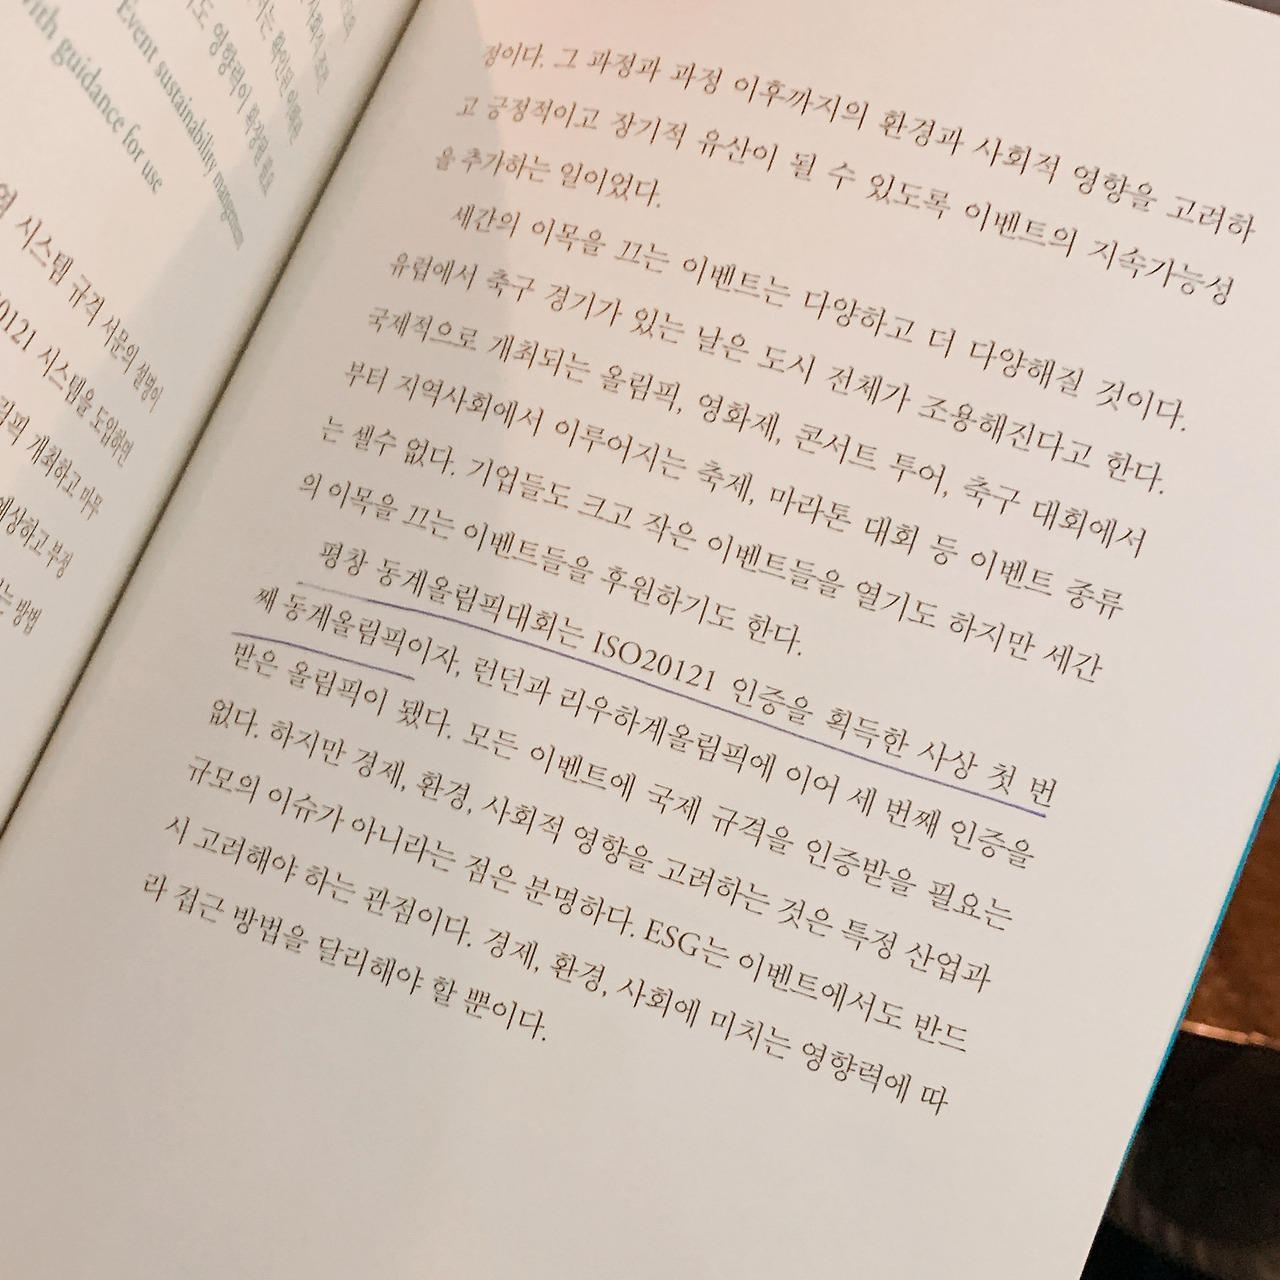 사회가 조화
서는 확인된 이해관
도 영향력이 확장될 필요
Event sustainability
with guidance for use
시스템 규격 서문의 설명이
20121 시스템을 도입하면
림픽 개최하고 마무
예상하고 부정
는 방법
정이다. 그 과정과 과정 이후까지의 환경과 사회적 영향을 고려하
고 긍정적이고 장기적 유산이 될 수 있도록 이벤트의 지속가능성
을 추가하는 일이었다.
세간의 이목을 끄는 이벤트는 다양하고 더 다양해질 것이다.
유럽에서 축구 경기가 있는 날은 도시 전체가 조용해진다고 한다.
국제적으로 개최되는 올림픽, 영화제, 콘서트 투어, 축구 대회에서
부터 지역사회에서 이루어지는 축제, 마라톤 대회 등 이벤트 종류
는 셀수 없다. 기업들도 크고 작은 이벤트들을 열기도 하지만 세간
의 이목을 끄는 이벤트들을 후원하기도 한다.
평창 동계올림픽대회는 ISO20121 인증을 획득한 사상 첫 번
째 동계올림픽이자, 런던과 리우하계올림픽에 이어 세 번째 인증을
받은 올림픽이 됐다. 모든 이벤트에 국제 규격을 인증받을 필요는
없다. 하지만 경제, 환경, 사회적 영향을 고려하는 것은 특정 산업과
규모의 이슈가 아니라는 점은 분명하다. ESG는 이벤트에서도 반드
시 고려해야 하는 관점이다. 경제, 환경, 사회에 미치는 영향력에 따
라 접근 방법을 달리해야 할 뿐이다.